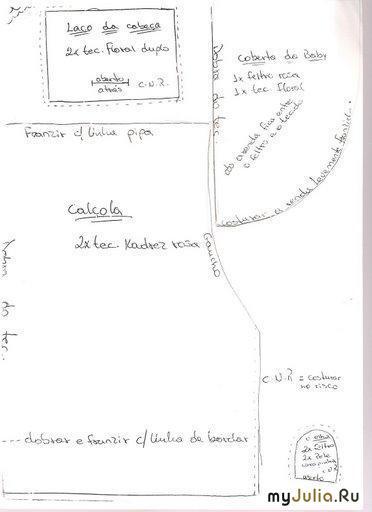 Laço da cabeça
2x tec. floral duplo
aberto
atrás
C.N.R.
Dobra do tec.
Coberta do Baby
1x feltro rosa
1x tec. floral
a renda fica entre
o feltro e o tecido
costurar a renda levemente franzida.
Franzir c/ linha pipa
Calçola
2x tec. Xadrez rosa
Gancho
Dobra do tec.
C.N.R = costurar
no risco
--- dobrar e franzir c/ linha de bordar
2x feltro
C.N.R
aberto
myJulia.Ru